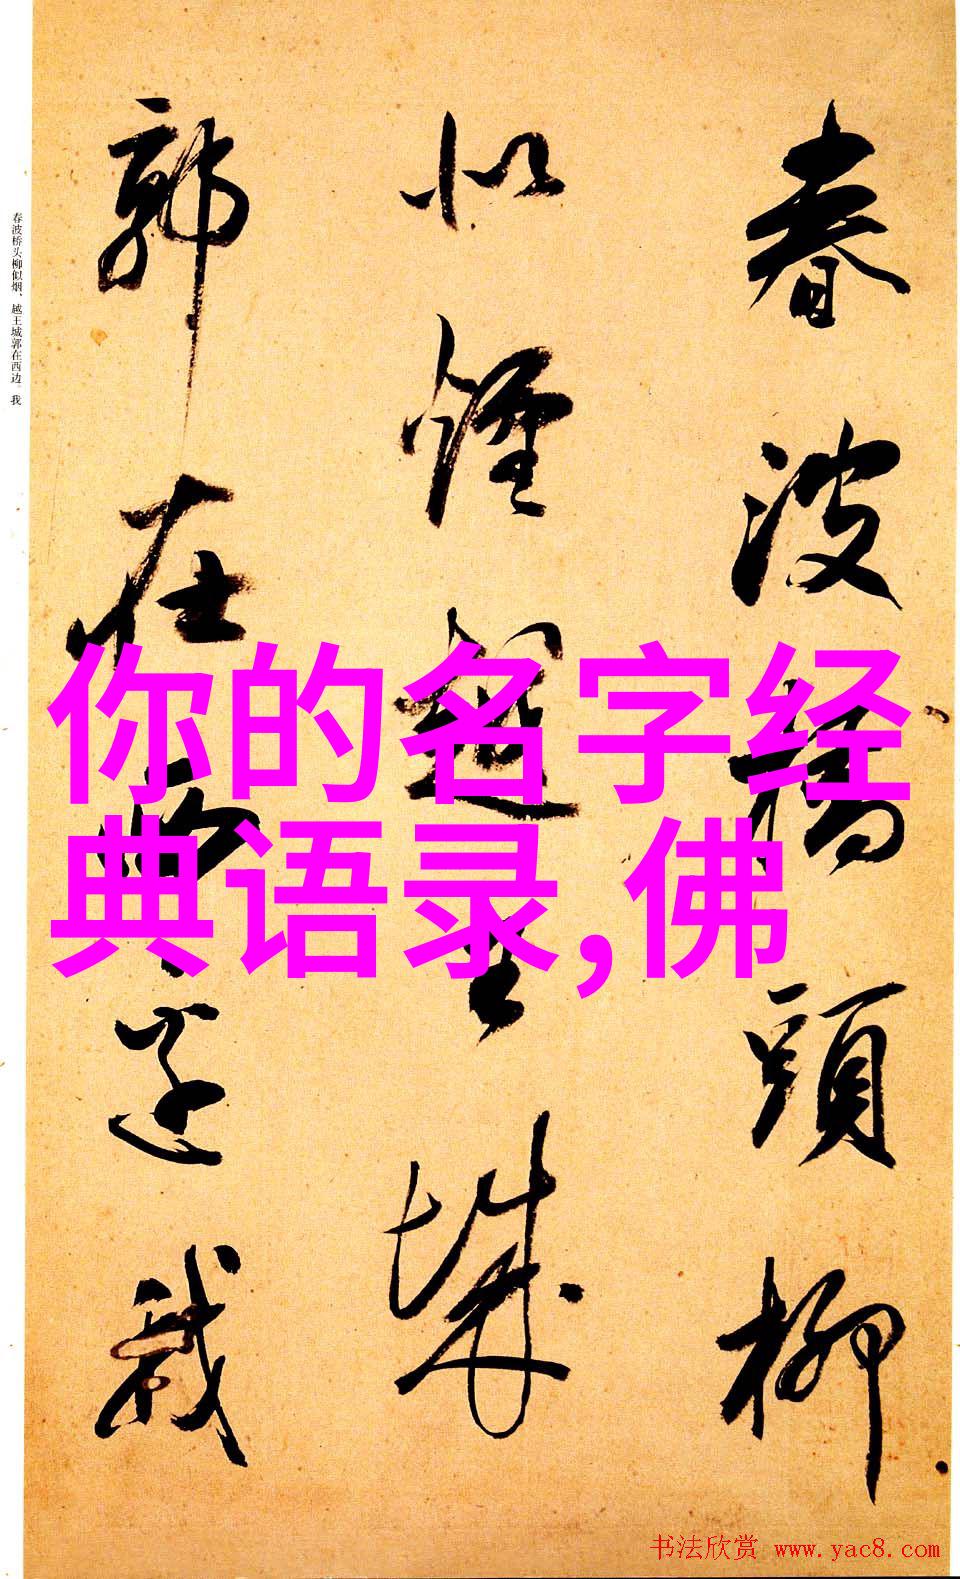 春波橋頭柳
似煙越王城
郭在西邊我
春波桥头柳似烟、越王城郭在西边。我
你的名字经
典语录,佛
书法欣赏 www.yac8.com